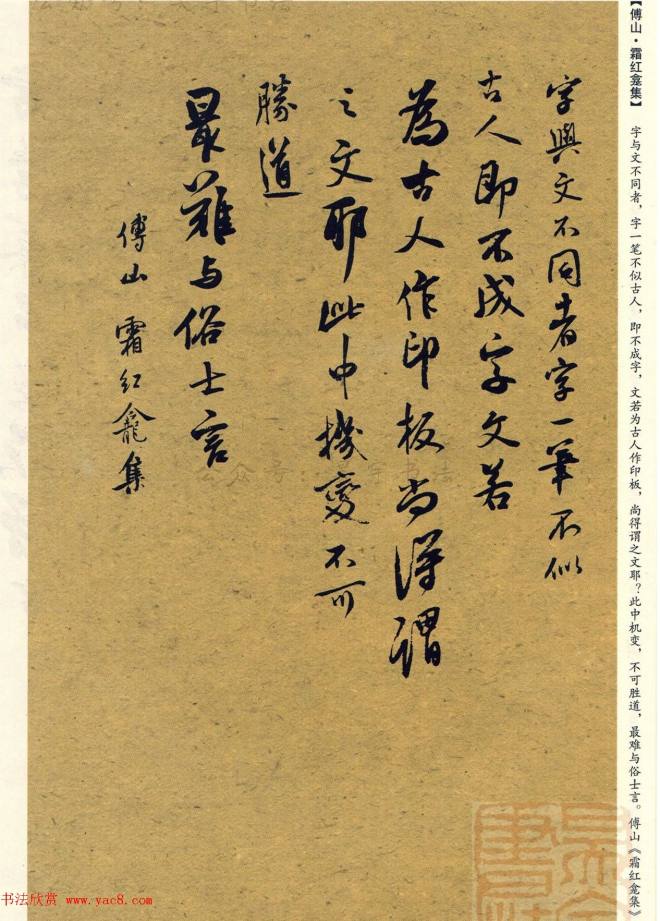 【傅山·霜红龛集】 字与文不同者，字一笔不似古人，即不成字，文若为古人作印板，尚得谓之文耶？此中机变，不可胜道，最难与俗士言。傅山《霜红龛集》
字與文不同者字一筆不似
古人即不成字文若
為古人作印板尚得謂
之文耶此中機變不可
勝道
最難与俗士言
傅山 霜红龕集
书法欣赏 www.yac8.com